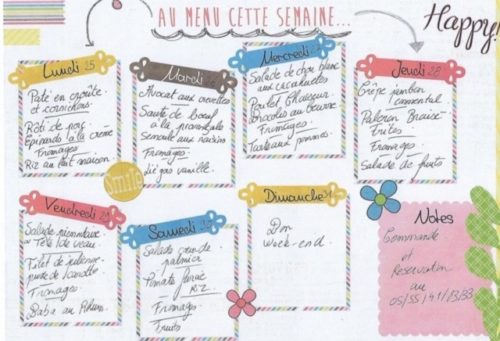 AU MENU CETTE SEMAINE...
Happy!
Lundi 25
Paté en croûte
et cornichons
Rôti de porc
Epinards à la crème
Fromages
Riz au lait maison
Mardi
Avocat aux crevettes
Sauté de boeuf
à la provençale
Semoule aux raisins
Fromages
vanille
Mercredi
Salade de chou blanc
aux cacahuètes
Poulet Chasseur
Brocolis au beurre
Fromages
Tarte aux pommes
Jeudi 28
Crêpe jambon
emmental
Paleron Braisé
Frites
Fromages
Salade de fruits
Smile
Vendredi 29
Salade piemontaise
ou Tête de veau
Filet de julienne
purée de Carotte
Fromages
Baba au Rhum
Samedi 30
Salade
palmier
Tomate farcie
Riz
Fromages
Fruits
Dimanche 31
Bon
Week-end.
Notes
Commande
et
Reservation
au
05/55/41/